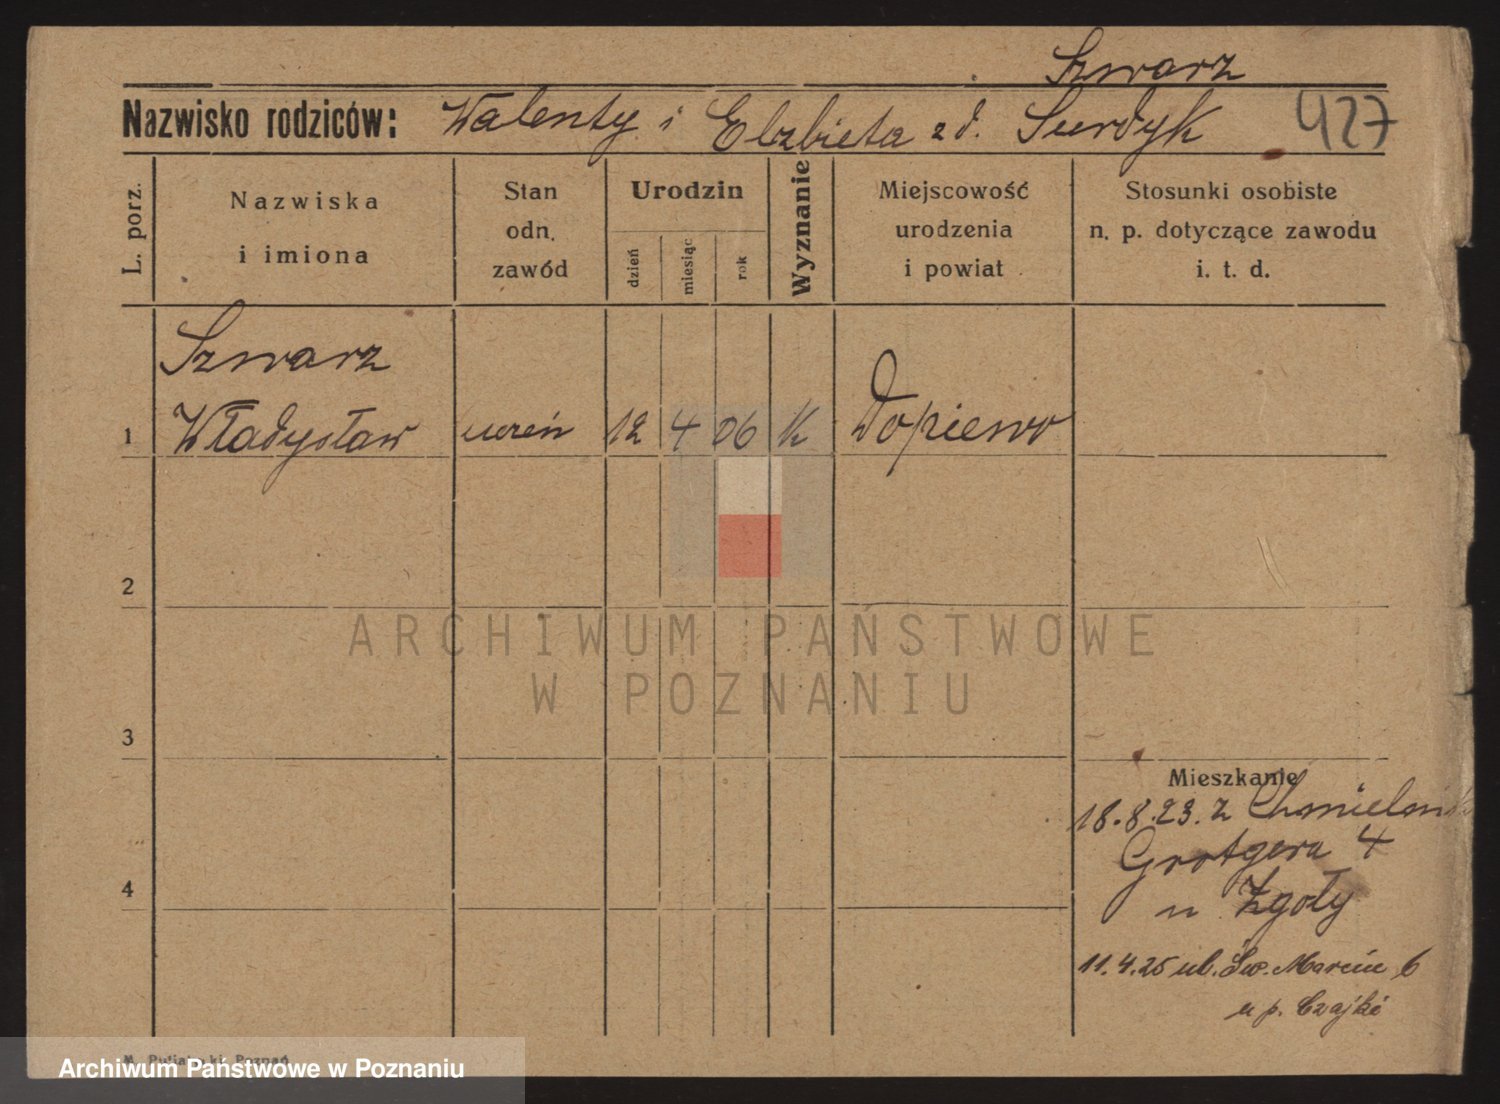 Szwarz
Nazwisko rodziców: Walenty i Elżbieta z d. Surdyk 427
L. porz.
Nazwiska
i imiona
Stan
odn.
zawód
Urodzin
dzień
miesiąc
rok
Wyznanie
Miejscowość
urodzenia
i powiat
Stosunki osobiste
n. p. dotyczące zawodu
i. t. d.
Szwarz
1 Władysław uczeń 12 4 06 K Dopiewo
2
ARCHIWUM PAŃSTWOWE
W POZNANIU
3
Mieszkanie
18.8.23. z Chmielnik
Grotgera 4
4
u Zgoły
11.4.25 ul. Św. Marcin 6
u p. Czajki
Poznań
Archiwum Państwowe w Poznaniu